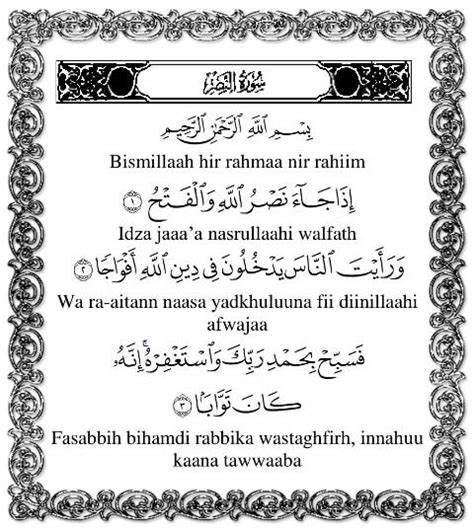 سُورَةُ النَّصْرِ
بِسْمِ اللَّهِ الرَّحْمَٰنِ الرَّحِيمِ
Bismillaah hir rahmaa nir rahiim
إِذَا جَآءَ نَصْرُ اللَّهِ وَالْفَتْحُ ۝١
Idza jaaa'a nasrullaahi walfath
وَرَأَيْتَ النَّاسَ يَدْخُلُونَ فِي دِينِ اللَّهِ أَفْوَاجًا ۝٢
Wa ra-aitann naasa yadkhuluuna fii diinillaahi
afwajaa
فَسَبِّحْ بِحَمْدِ رَبِّكَ وَاسْتَغْفِرْهُ ۚ إِنَّهُ
كَانَ تَوَّابًا ۝٣
Fasabbih bihamdi rabbika wastaghfirh, innahuu
kaana tawwaaba